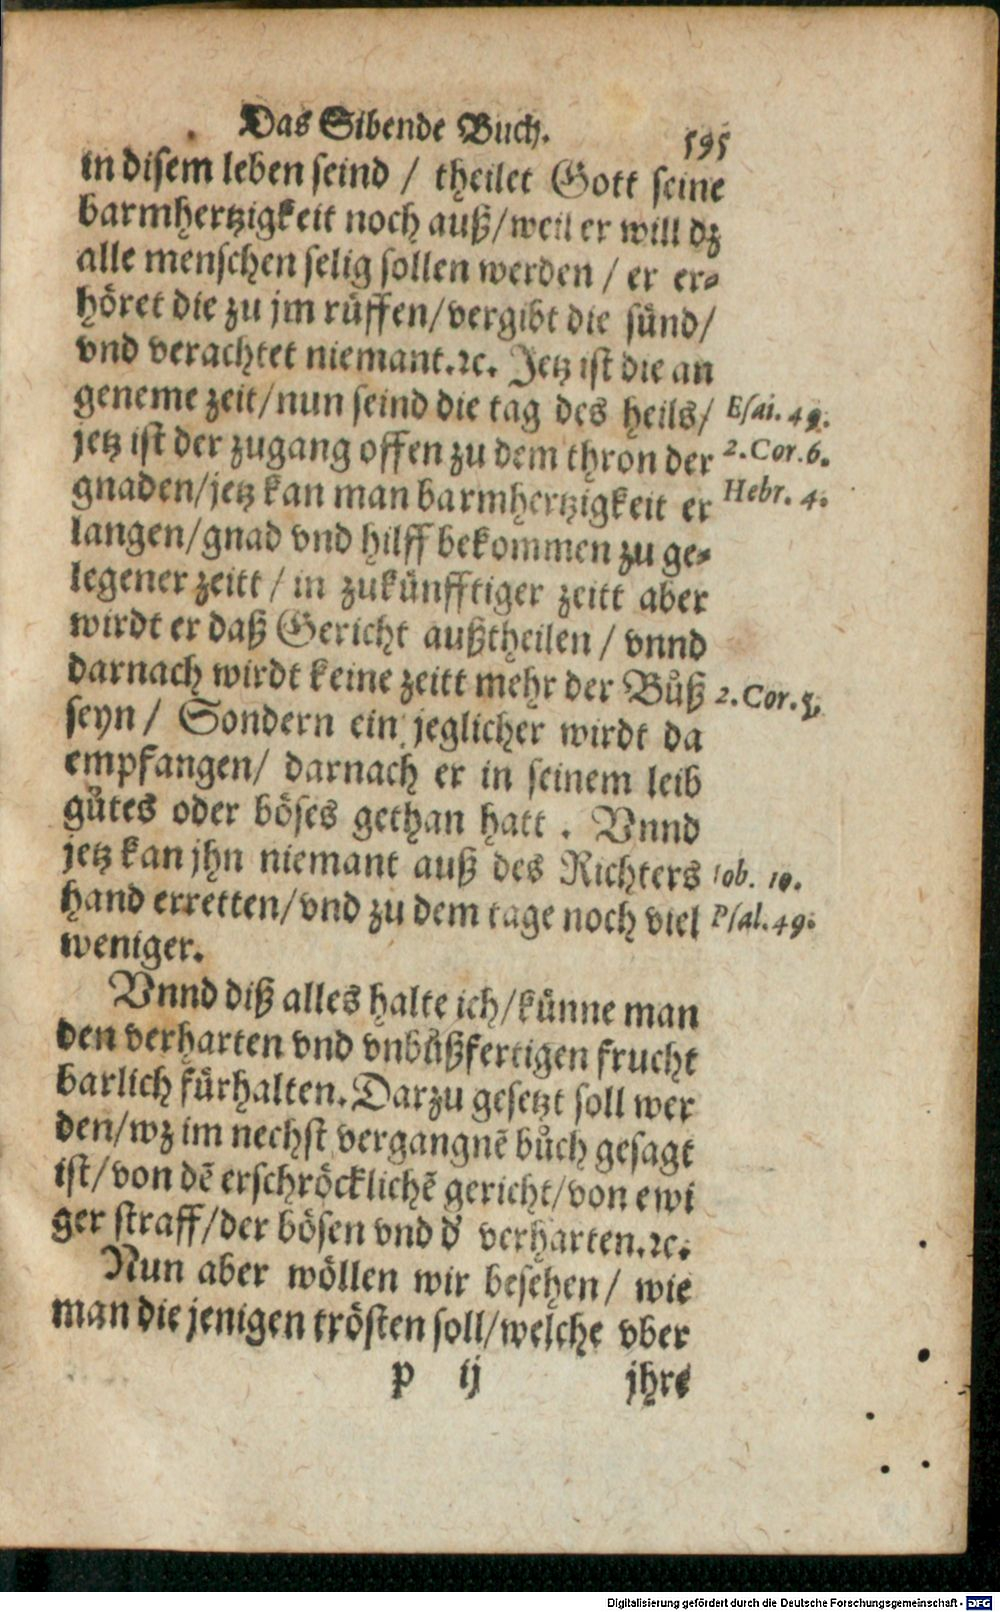 Das Sibende Buch. 595
in disem leben seind / theilet Gott seine
barmhertzigkeit noch auß/weil er will dz
alle menschen selig sollen werden / er er⸗
höret die zu jm rüffen/vergibt die sünd/
vnd verachtet niemant.ꝛc. Jetz ist die an
geneme zeit/nun seind die tag des heils/ Esai. 49.
jetz ist der zugang offen zu dem thron der 2.Cor.6.
gnaden/jetz kan man barmhertzigkeit er Hebr. 4.
langen/gnad vnd hilff bekommen zu ge⸗
legener zeitt / in zukünfftiger zeitt aber
wirdt er daß Gericht außtheilen / vnnd
darnach wirdt keine zeitt mehr der Bůß 2.Cor.5.
seyn / Sondern ein jeglicher wirdt da
empfangen/ darnach er in seinem leib
gůtes oder böses gethan hatt . Vnnd
jetz kan jhn niemant auß des Richters Iob. 10.
hand erretten/vnd zu dem tage noch viel Psal.49.
weniger.
Vnnd diß alles halte ich/künne man
den verharten vnd vnbůßfertigen frucht
barlich fürhalten. Darzu gesetzt soll wer
den/wz im nechst vergangnē bůch gesagt
ist/von dē erschröcklichē gericht/von ewi
ger straff/der bösen vnd d' verharten.ꝛc.
Nun aber wöllen wir besehen/ wie
man die jenigen trösten soll/welche vber
p ij jhre
Digitalisierung gefördert durch die Deutsche Forschungsgemeinschaft - DFG